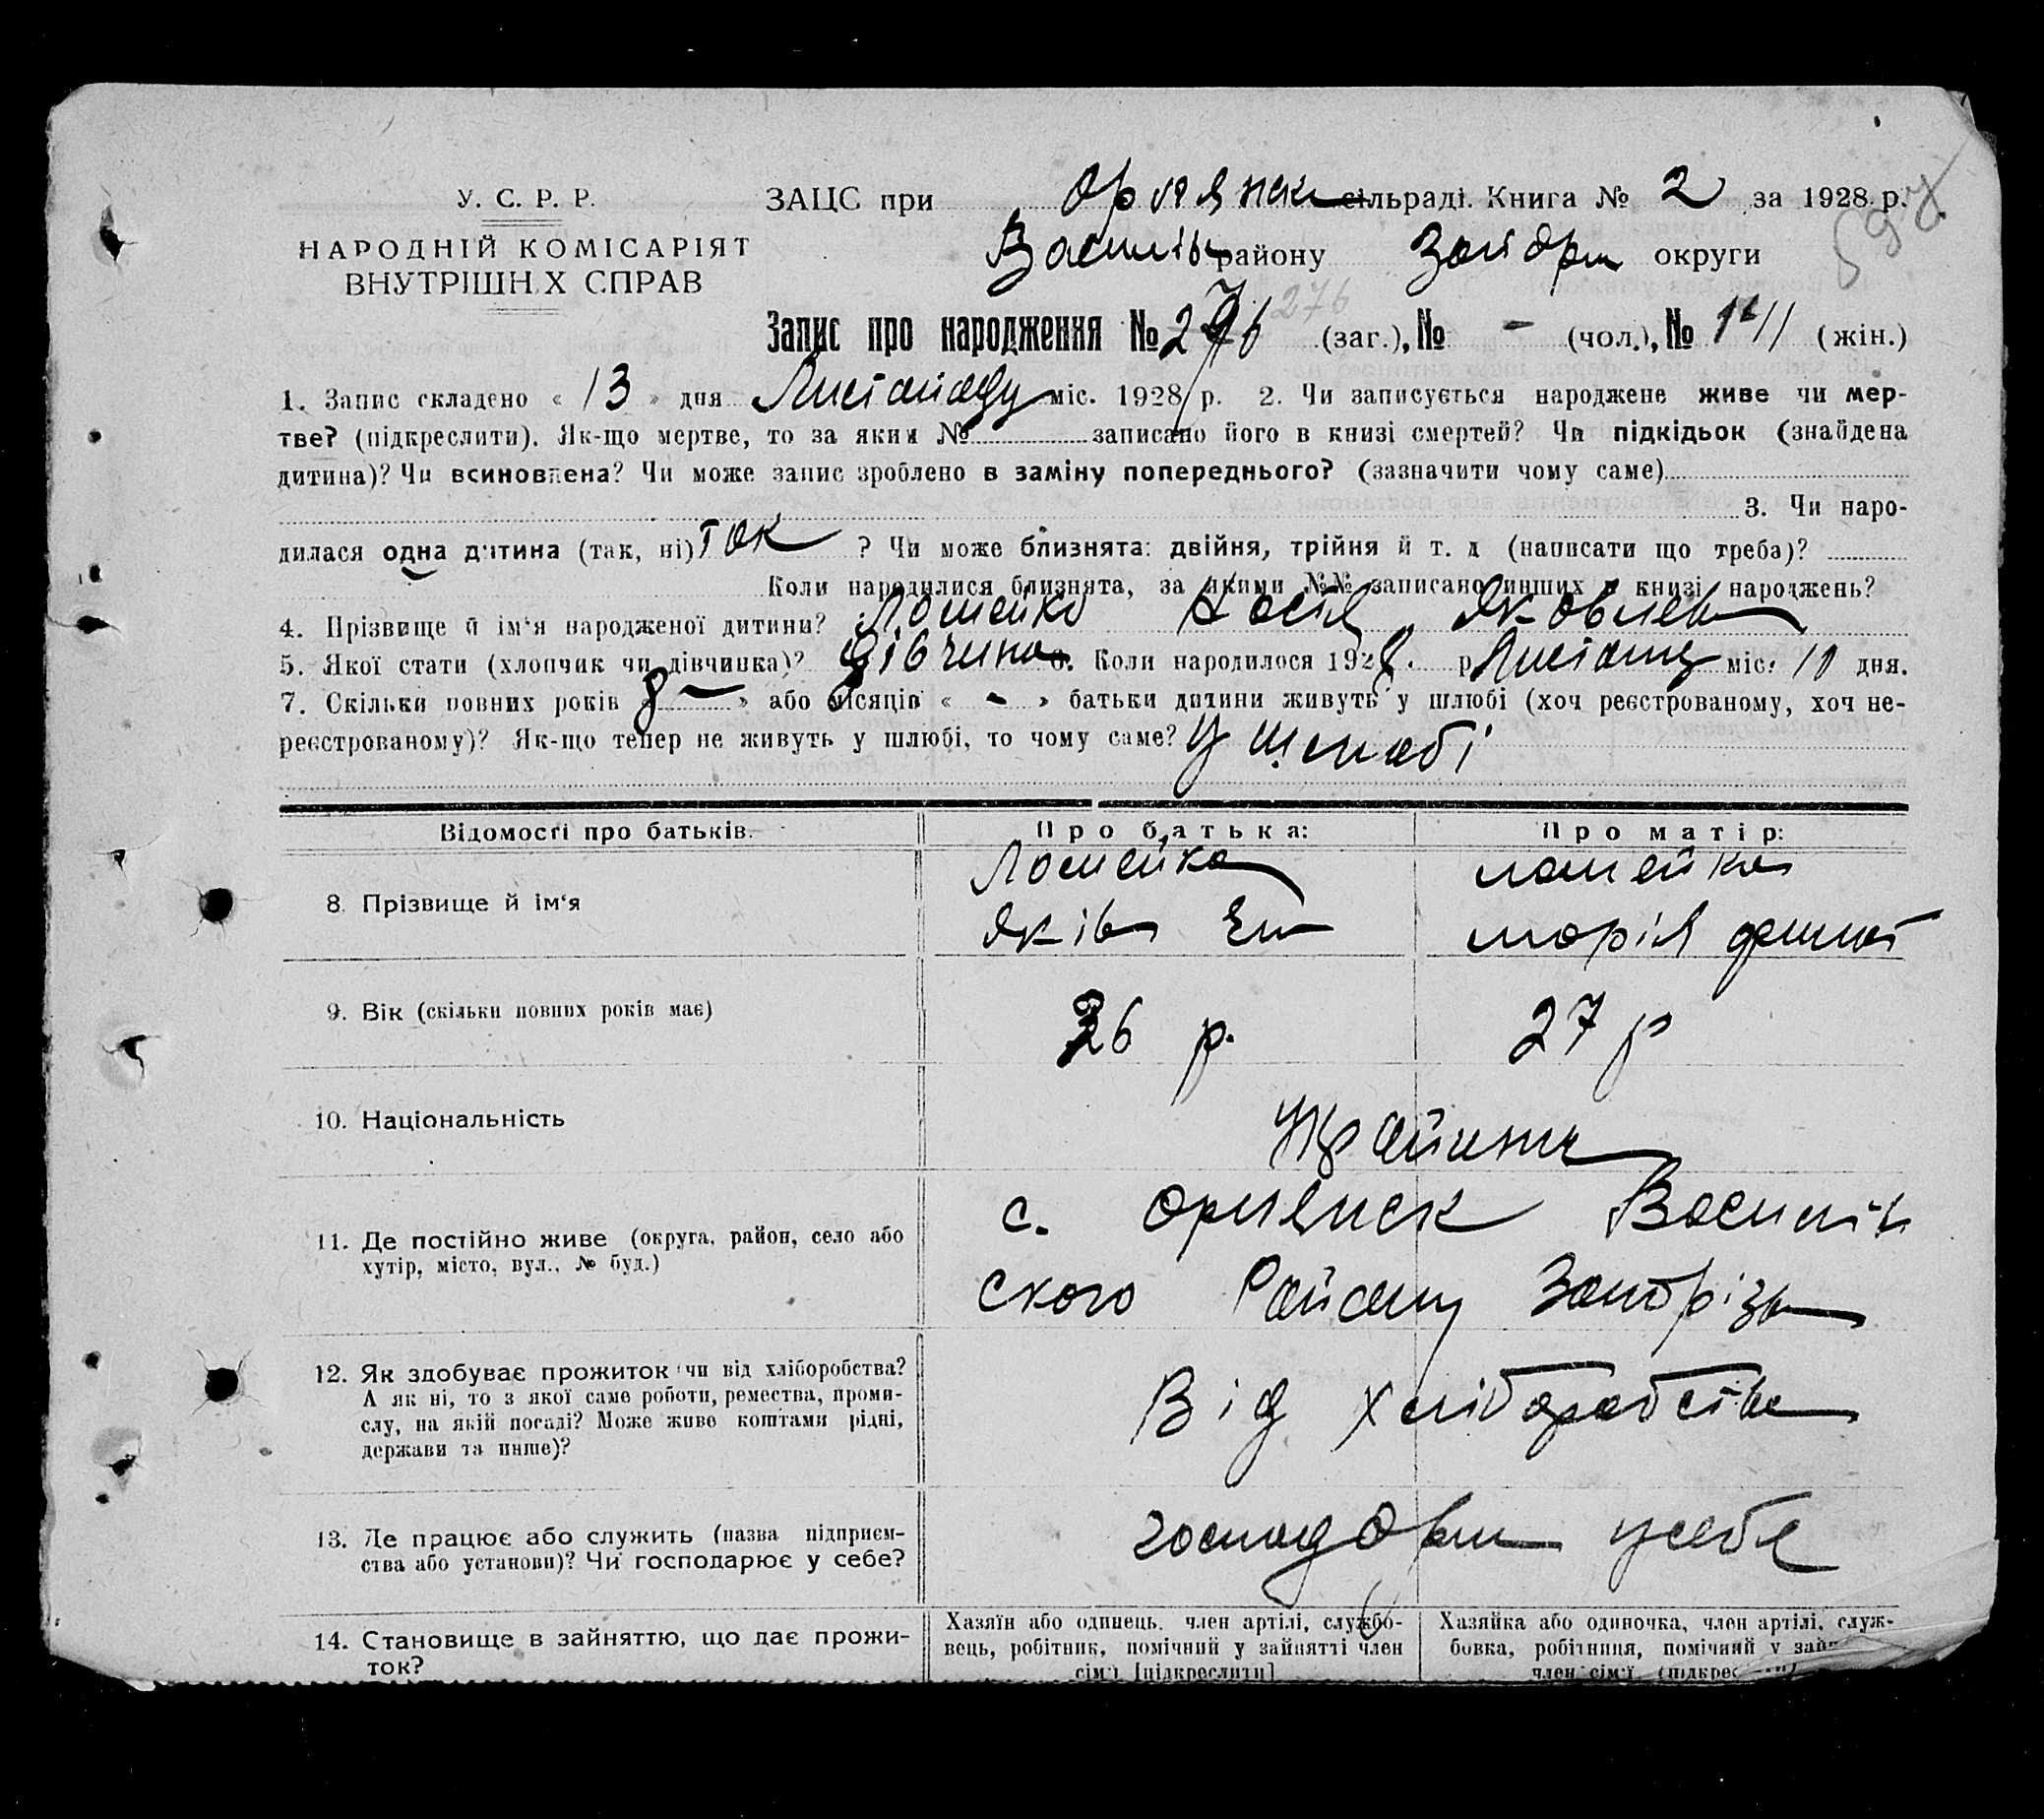 У. С. Р. Р.
НАРОДНІЙ КОМІСАРІЯТ
ВНУТРІШН Х СПРАВ
ЗАЦС при Орлянск сільраді. Книга № 2 за 1928 р.
Василів району Запоріз округи
Запис про народження № 276 (заг.), № - (чол.), № (жін.)
276
1. Запис складено « 13 » дня Листопаду міс. 1928 р. 2. Чи записується народжене живе чи мер-
тве? (підкреслити). Як-що мертве, то за яким № записано його в книзі смертей? Чи підкідьок (знайдена
дитина)? Чи всиновлена? Чи може запис зроблено в заміну попереднього? (зазначити чому саме)
3. Чи наро-
дилася одна дитина (так, ні) Так ? Чи може близнята: двійня, трійня й т. д (написати що треба)?
Коли народилися близнята, за якими №№ записано инших в книзі народжень?
4. Прізвище й ім'я народженої дитини? Лошейко Настя Яковлев
5. Якої стати (хлопчик чи дівчинка)? Дівчина 6. Коли народилося 1928. р. Листопад міс. 10 дня.
7. Скільки повних років « 8 » або місяців « - » батьки дитини живуть у шлюбі (хоч реєстрованому, хоч не-
реєстрованому)? Як-що тепер не живуть у шлюбі, то чому саме? У шлюбі
Відомості про батьків. Про батька: Про матір:
8. Прізвище й ім'я
Лошейко
Яків
Лошейко
Марія
9. Вік (скільки повних років має) 26 р. 27 р
10. Національність Україн
11. Де постійно живе (округа, район, село або
хутір, місто, вул., № буд.)
с. Орлянск Василів
ского Району Запорізь
12. Як здобуває прожиток чи від хліборобства?
А як ні, то з якої саме роботи, ремества, проми-
слу, на якій посаді? Може живе коштами рідні,
держави та инше)?
Від хліборобства
13. Де працює або служить (назва підприєм-
ства або установи)? Чи господарює у себе?
господарюв у себе
14. Становище в зайняттю, що дає прожи-
ток?
Хазяїн або одинець, член артілі, службо-
вець, робітник, помічний у зайнятті член
сім'ї [підкреслити]
Хазяйка або одиночка, член артілі, служ-
бовка, робітниця, помічний у зайн
член сім'ї (підкрес